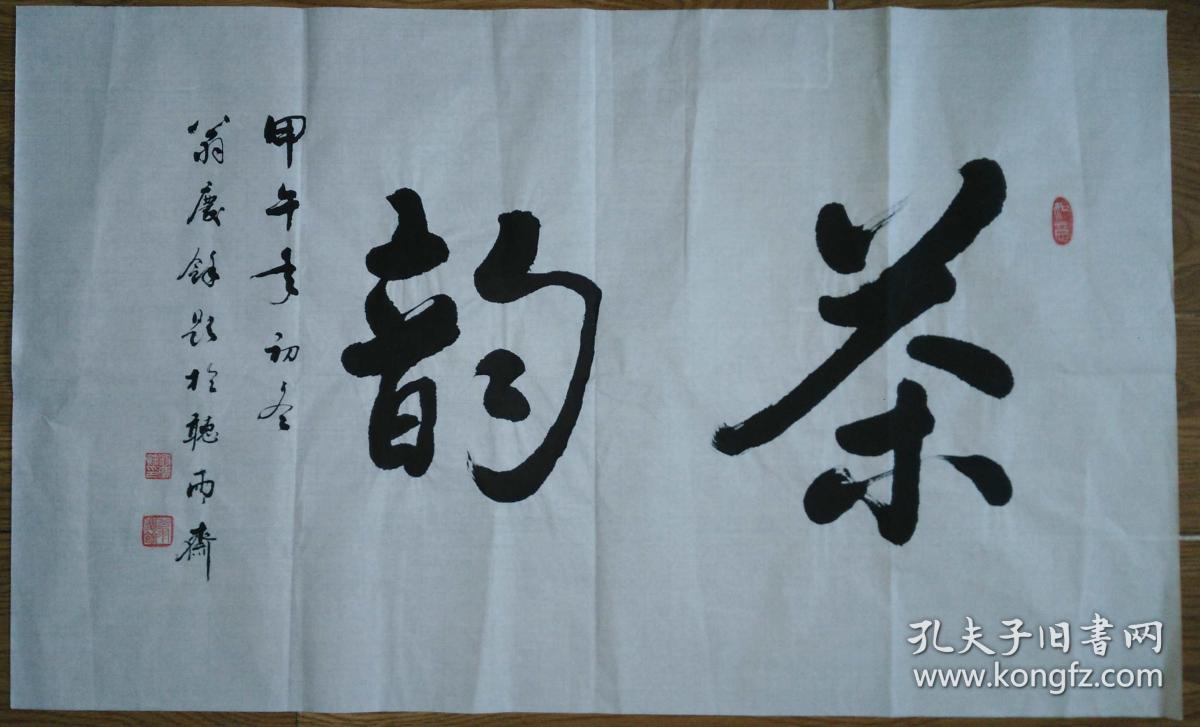 茶韵
甲午年初冬
翁庆馀题於聼雨斋
孔夫子旧书网
www.kongfz.com